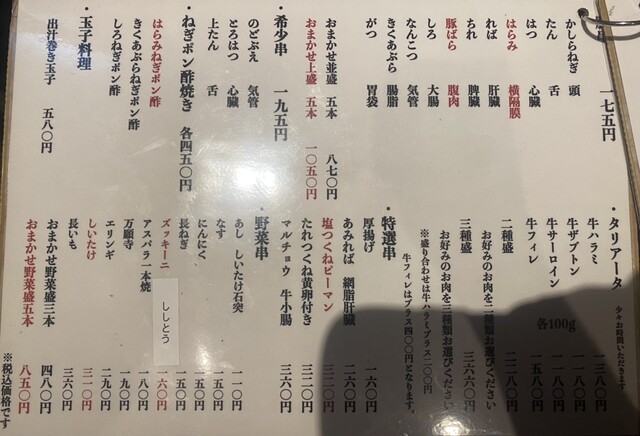 一七五円
かしらねぎ 頭
たん 舌
はつ 心臓
はらみ 横隔膜
れば 肝臓
ちれ 脾臓
豚ばら 腹肉
しろ 大腸
なんこつ 気管
きくあぶら 腸脂
がつ 胃袋
おまかせ並盛 五本 八七〇円
おまかせ上盛 五本 一〇五〇円
・希少串 一九五円
のどぶえ 気管
とろはつ 心臓
上たん 舌
・ねぎポン酢焼き 各四五〇円
はらみねぎポン酢
きくあぶらねぎポン酢
しろねぎポン酢
・玉子料理
出汁巻き玉子 五八〇円
・タリアータ 少々お時間いただきます
牛ハラミ 一三八〇円
牛ザブトン 一一八〇円
牛サーロイン 一五八〇円
牛フィレ 一八八〇円
各100g
二種盛 二二八〇円
お好みのお肉を二種類お選びください
三種盛 三三六〇円
お好みのお肉を三種類お選びください
※盛り合わせは牛ハラミプラス二〇〇円
牛フィレはプラス四〇〇円となります。
・特選串
厚揚げ 一六〇円
あみれば 網脂肝臓
塩つくねピーマン 三二〇円
たれつくね黄卵付き 三二〇円
マルチョウ 牛小腸 三六〇円
・野菜串
あし しいたけ石突 一一〇円
なす 一五〇円
にんにく 一五〇円
長ねぎ 一五〇円
ズッキーニ 一六〇円
ししとう
アスパラ一本焼 一八〇円
万願寺 二九〇円
エリンギ 二九〇円
しいたけ 三一〇円
長いも 三六〇円
おまかせ野菜盛三本 四八〇円
おまかせ野菜盛五本 八五〇円
※税込価格です